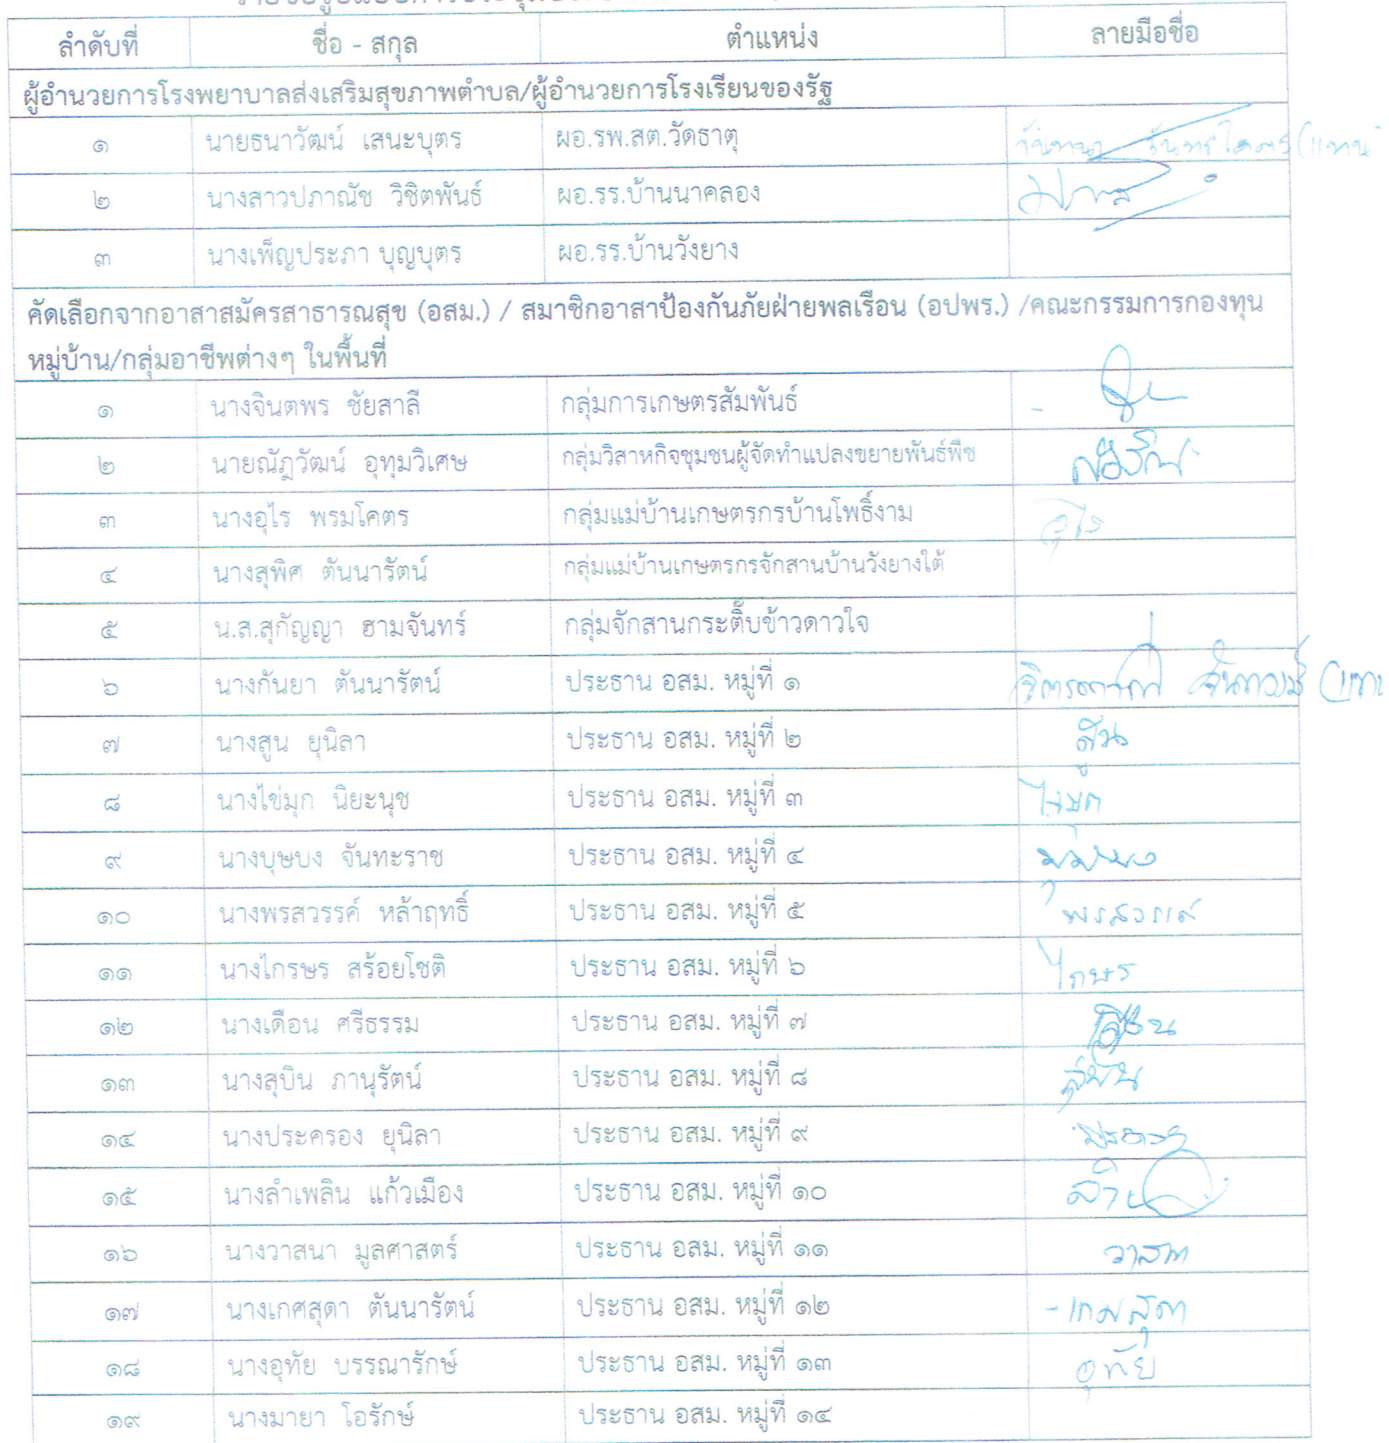 ลำดับที่ ชื่อ - สกุล ตำแหน่ง ลายมือชื่อ
ผู้อำนวยการโรงพยาบาลส่งเสริมสุขภาพตำบล/ผู้อำนวยการโรงเรียนของรัฐ
๑ นายธนาวัฒน์ เสนะบุตร ผอ.รพ.สต.วัดธาตุ (แทน
๒ นางสาวปภาณัช วิชิตพันธ์ ผอ.รร.บ้านนาคลอง
๓ นางเพ็ญประภา บุญบุตร ผอ.รร.บ้านวังยาง
คัดเลือกจากอาสาสมัครสาธารณสุข (อสม.) / สมาชิกอาสาป้องกันภัยฝ่ายพลเรือน (อปพร.) /คณะกรรมการกองทุน
หมู่บ้าน/กลุ่มอาชีพต่างๆ ในพื้นที่
๑ นางจินตพร ชัยสาลี กลุ่มการเกษตรสัมพันธ์ -
๒ นายณัฏวัฒน์ อุทุมวิเศษ กลุ่มวิสาหกิจชุมชนผู้จัดทำแปลงขยายพันธ์พืช
๓ นางอุไร พรมโคตร กลุ่มแม่บ้านเกษตรกรบ้านโพธิ์งาม อุไร
๔ นางสุพิศ ตันนารัตน์ กลุ่มแม่บ้านเกษตรกรจักสานบ้านวังยางใต้
๕ น.ส.สุกัญญา ฮามจันทร์ กลุ่มจักสานกระติ๊บข้าวดาวใจ
๖ นางกันยา ตันนารัตน์ ประธาน อสม. หมู่ที่ ๑
๗ นางสูน ยุนิลา ประธาน อสม. หมู่ที่ ๒ สูน
๘ นางไข่มุก นิยะนุช ประธาน อสม. หมู่ที่ ๓
๙ นางบุษบง จันทะราช ประธาน อสม. หมู่ที่ ๔
๑๐ นางพรสวรรค์ หล้าฤทธิ์ ประธาน อสม. หมู่ที่ ๕ พรสวรรค์
๑๑ นางไกรษร สร้อยโชติ ประธาน อสม. หมู่ที่ ๖ ไกษร
๑๒ นางเดือน ศรีธรรม ประธาน อสม. หมู่ที่ ๗
๑๓ นางสุบิน ภานุรัตน์ ประธาน อสม. หมู่ที่ ๘ สุบิน
๑๔ นางประครอง ยุนิลา ประธาน อสม. หมู่ที่ ๙
๑๕ นางลำเพลิน แก้วเมือง ประธาน อสม. หมู่ที่ ๑๐
๑๖ นางวาสนา มูลศาสตร์ ประธาน อสม. หมู่ที่ ๑๑
๑๗ นางเกศสุดา ตันนารัตน์ ประธาน อสม. หมู่ที่ ๑๒
๑๘ นางอุทัย บรรณารักษ์ ประธาน อสม. หมู่ที่ ๑๓ อุทัย
๑๙ นางมายา โอรักษ์ ประธาน อสม. หมู่ที่ ๑๔